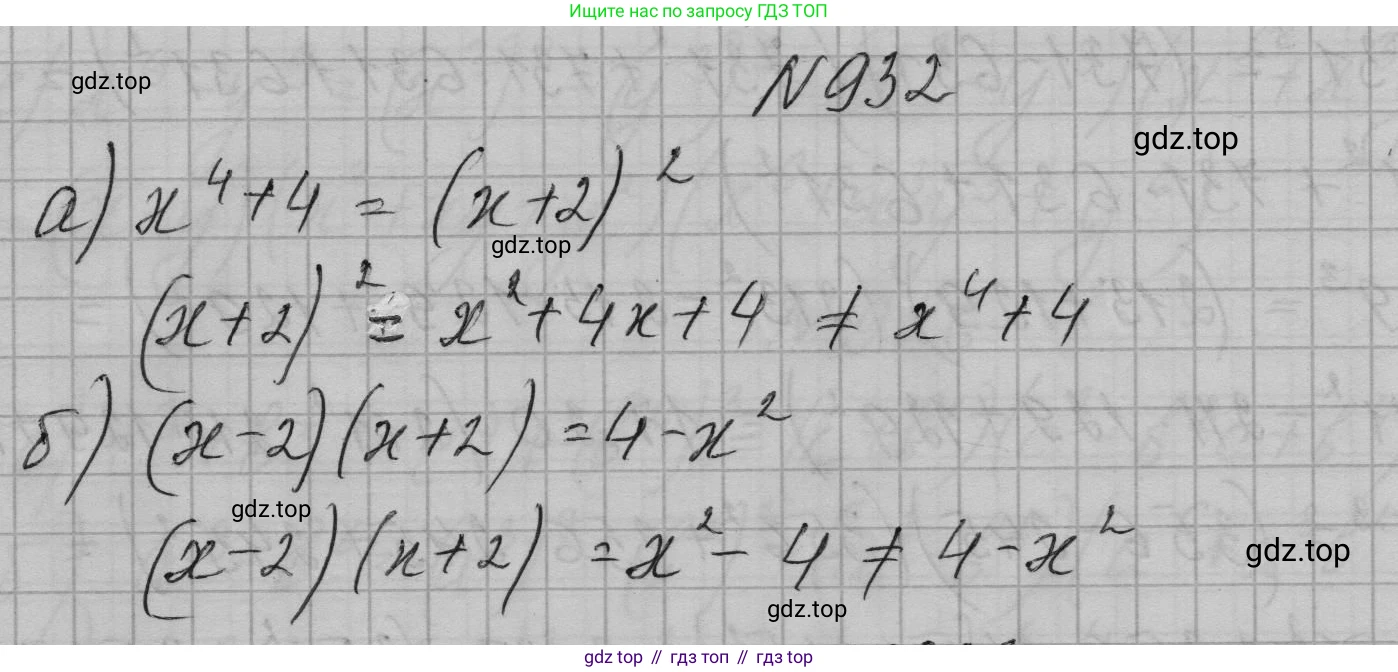 Ищите нас по запросу ГДЗ ТОП
gdz.top
N 932
gdz.top
а) x⁴+4 = (x+2)²
gdz.top
(x+2)² = x²+4x+4 ≠ x⁴+4
б) (x-2)(x+2) = 4-x²
gdz.top
(x-2)(x+2) = x²-4 ≠ 4-x²
gdz.top
gdz.top
gdz top // гдз топ // gdz top